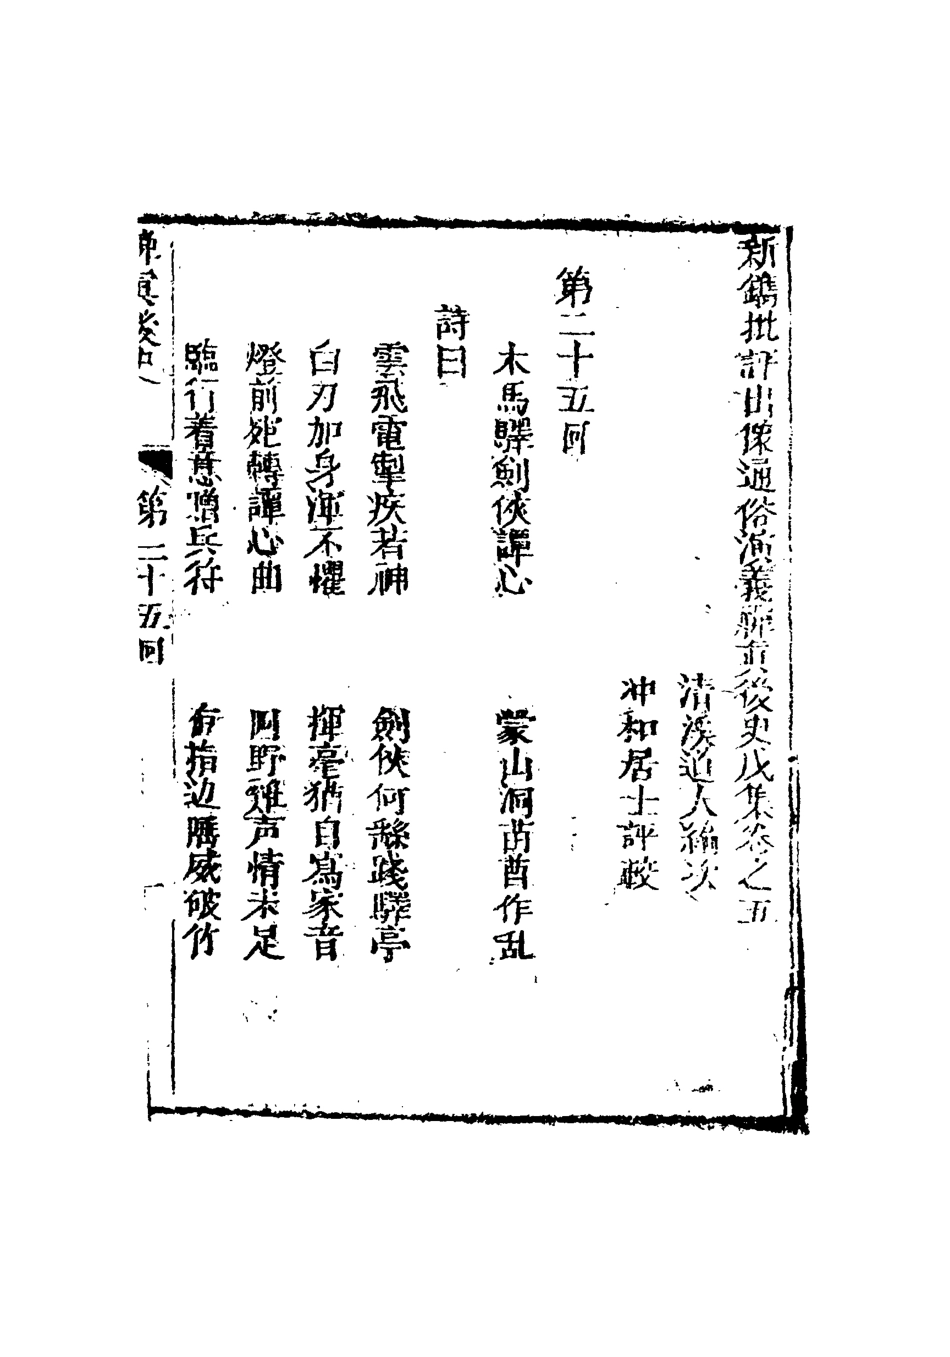 新鐫批評出像通俗演義禪真後史戊集卷之五
清溪道人編次
冲和居士評較
第二十五回
木馬驛劍俠譚心　蒙山洞苗酋作乱
詩曰
雲飛電掣疾若神　劍俠何繇踐驛亭
白刃加身渾不懼　揮毫猶自寫家音
燈前宛轉譚心曲　四野雞声情未足
臨行着意贈兵符　有指边隅威破竹
禪真後史　第二十五回